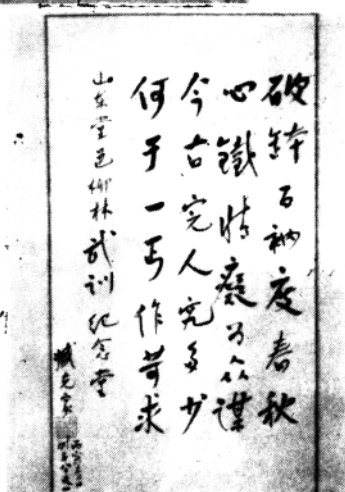 破鉢百衲度春秋
心鐵情癡为众謀
今古完人究多少
何于一丐作苛求
山东堂邑柳林武训纪念堂
臧克家